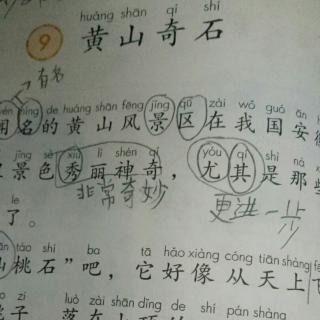 huáng shān qí shí
9 黄山奇石
有名
wén míng de huáng shān fēng jǐng qū zài wǒ guó ān
闻名的黄山风景区在我国安
jǐng sè xiù lì shén qí yóu qí shì nà
景色秀丽神奇，尤其是那些
非常奇妙 更进一步
了。
táo shí ba tā hǎo xiàng cóng tiān shàng
仙桃石”吧，它好像从天上下
zi luò zài shān dǐng de shí pán shàng
桃子 落在山顶的